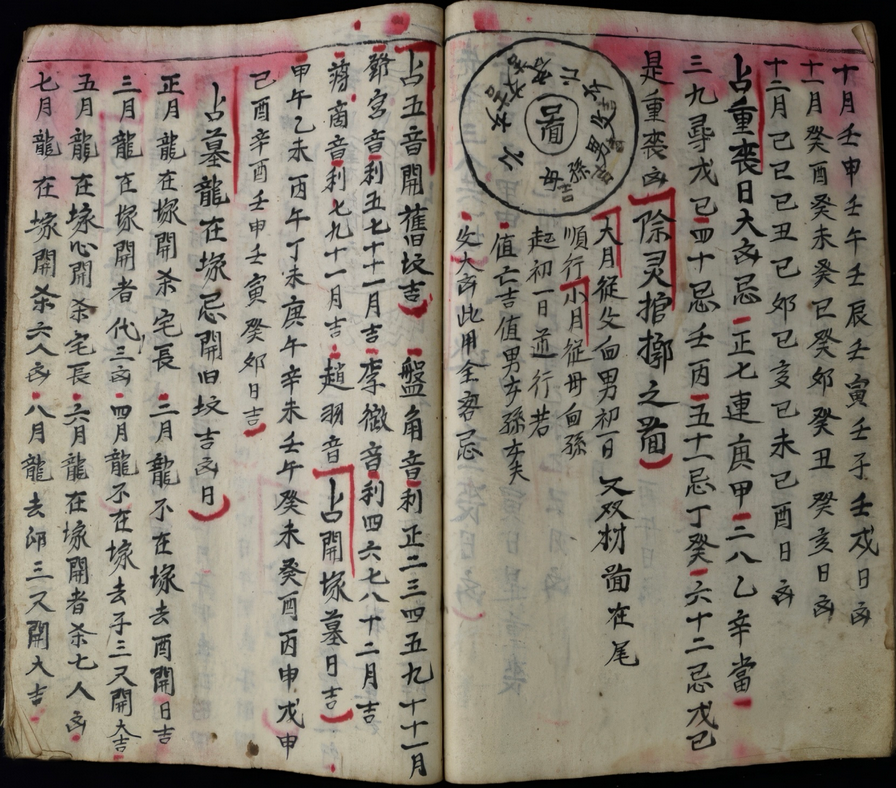 十月壬申壬午壬辰壬寅壬子壬戍日凶
十一月癸酉癸未癸巳癸卯癸丑癸亥日凶
十二月己巳己丑己卯己亥己未己酉日凶
占重喪日大凶忌正七連庚甲二八乙辛當
三九尋戊己四十忌壬丙五十一忌丁癸六十二忌戊己
是重喪凶
除灵棺槨之啚
大月從父向男初一日
又双材啚在尾
順行小月從母向孫
起初一日逆行若
值亡吉值男女孫女夫
父大凶此用全客忌
啚
占五音開舊旧坟吉
盤角音利正二三四五九十十一月
鄧宮音利五七十十一月吉
李徵音利四六七八十二月吉
蔣商音利七九十一月吉
趙羽音
占開塚墓日吉
甲午乙未丙午丁未庚午辛未壬午癸未癸酉丙申戊申
己酉辛酉壬申壬寅癸卯日吉
占墓龍在塚忌開旧坟吉凶日
正月龍在塚開杀宅長
二月龍不在塚去酉開日吉
三月龍在塚開者代三凶
四月龍不在塚去子三又開大吉
五月龍在塚心開杀宅長
六月龍在塚開者杀七人凶
七月龍在塚開杀六人凶
八月龍去卯三又開大吉